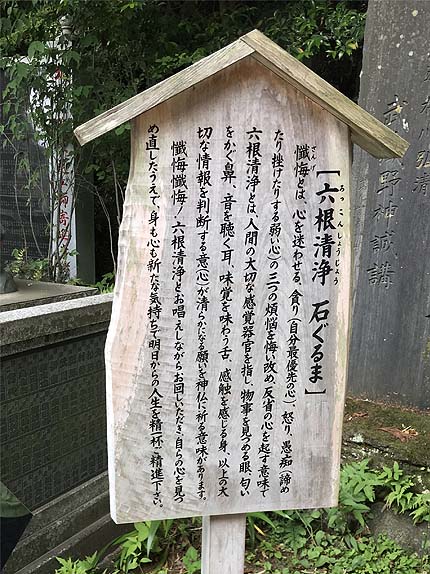 「六根清浄 石ぐるま」
ろっこんしょうじょう
懺悔とは、心を迷わせる、貪り(自分最優先の心)、怒り、愚痴(諦め
さんげ
たり挫けたりする弱い心)の三つの煩悩を悔い改め、反省の心を起す意味で
六根清浄とは、人間の大切な感覚器官を指し、物事を見つめる眼、匂い
をかぐ鼻、音を聴く耳、味覚を味わう舌、感触を感じる身、以上の大
切な情報を判断する意(心)が清らかになる願いを神仏に祈る意味があります。
懺悔懺悔!六根清浄とお唱えしながらお回しいただき、自らの心を見つ
め直したうえで、身も心も新たな気持ちで明日からの人生を精一杯ご精進下さい。
武蔵野神誠講